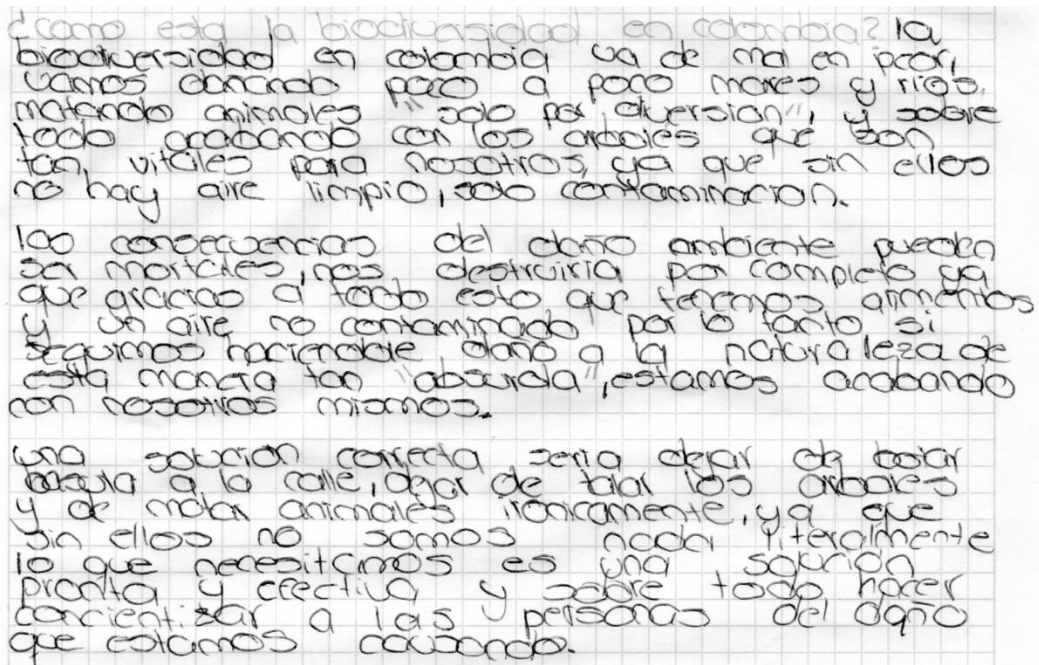 ¿como esta la biodiversidad en colombia? la
biodiversidad en colombia va de mal en peor,
vamos dañando poco a poco mares y rios,
matando animales "solo por diversion", y sobre
todo acabando con los arboles que son
tan vitales para nosotros, ya que sin ellos
no hay aire limpio, solo contaminacion.
las consecuencias del daño ambiente pueden
ser mortales, nos destruiria por completo ya
que gracias a todo esto que tenemos alimentos
y un aire no contaminado por lo tanto si
seguimos haciendole daño a la naturaleza de
esta manera tan "absurda", estamos acabando
con nosotros mismos.
una solucion correcta seria dejar de botar
basura a la calle, dejar de talar los arboles
y de matar animales ironicamente, ya que
sin ellos no somos nada literalmente
lo que necesitamos es una solucion
pronta y efectiva y sobre todo hacer
concientizar a las personas del daño
que estamos causando.